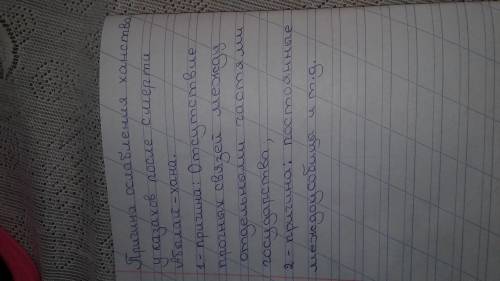 Причина ослабления ханства
у казахов после смерти
Абылай-хана.
1-причина: Отсутствие
прочных связей между
отдельными частями
государства,
2-причина: постоянные
междоусобица и т.д.